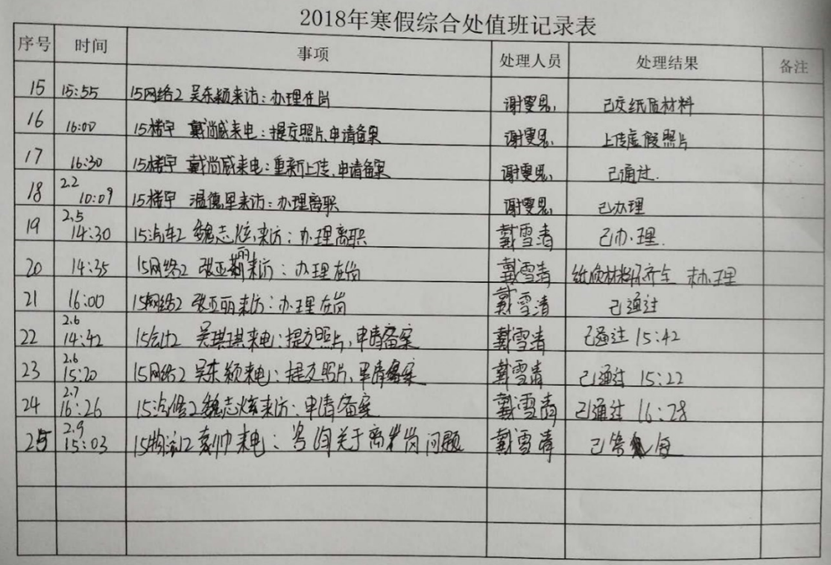 2018年寒假综合处值班记录表
序号 时间 事项 处理人员 处理结果 备注
15 15:55 15网络2 吴东颖来访:办理在岗 谢雯思 已交纸质材料
16 16:00 15楼宇 戴尚威来电:提交照片,申请备案 谢雯思 上传虚假照片
17 16:30 15楼宇 戴尚威来电:重新上传,申请备案 谢雯思 已通过.
18 2.2 10:09 15楼宇 温德里来访:办理离职 谢雯思 已办理
19 2.5 14:30 15汽车2 魏志炫来访:办理离职 戴雪清 已办理.
20 14:35 15网络2 张亚丽来访:办理在岗 戴雪清 纸质材料不齐全 未办理
21 16:00 15网络2 张亚丽来访:办理在岗 戴雪清 已通过
22 2.6 14:42 15会计2 吴琪琪来电:提交照片,申请备案 戴雪清 已通过 15:42
23 2.6 15:20 15网络2 吴东颖来电:提交照片,申请备案 戴雪清 已通过 15:22
24 2.7 16:26 15汽修2 魏志炫来访:申请备案 戴雪清 已通过 16:28
25 2.9 15:03 15物流2 帅来电:咨询关于离岗问题 戴雪清 已答